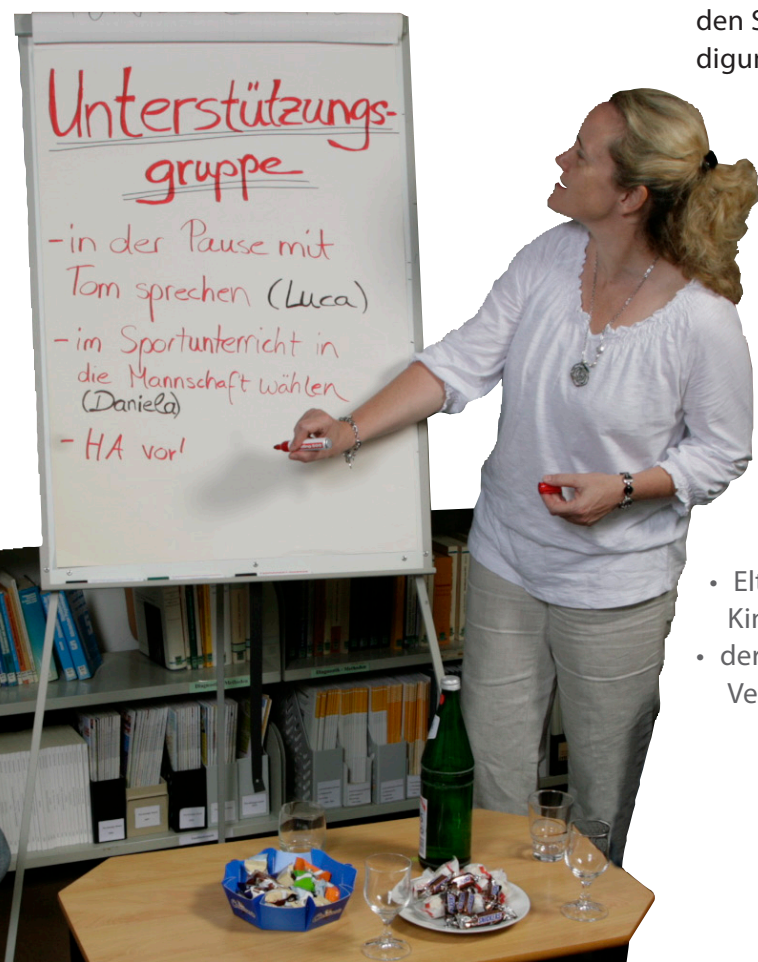 den S
digun
Unterstützungs-
gruppe
- in der Pause mit
Tom sprechen (Luca)
- im Sportunterricht in
die Mannschaft wählen
(Daniela)
- HA vor
• Elt
Kin
• der
Ve